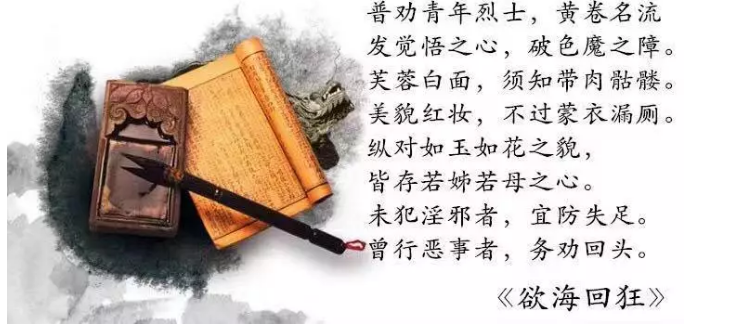 普劝青年烈士，黄卷名流
发觉悟之心，破色魔之障。
芙蓉白面，须知带肉骷髅。
美貌红妆，不过蒙衣漏厕。
纵对如玉如花之貌，
皆存若姊若母之心。
未犯淫邪者，宜防失足。
曾行恶事者，务劝回头。
《欲海回狂》